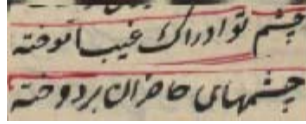 چشم تو ادراک غیب آموخته
چشمهای حاضران بردوخته